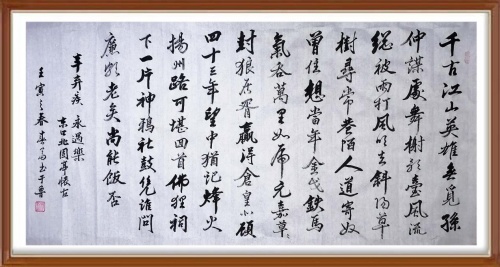 千古江山英雄无覓孫
仲謀處舞榭歌臺風流
総被雨打風吹去斜陽草
樹尋常巷陌人道寄奴
曾住想當年金戈鉄馬
氣吞萬里如虎元嘉草〻
封狼居胥贏得倉皇北顧
四十三年望中猶記烽火
揚州路可堪回首佛狸祠
下一片神鴉社鼓凭誰問
廉頗老矣尚能飯否
辛弃疾 永遇樂
京口北固亭懷古
壬寅之春